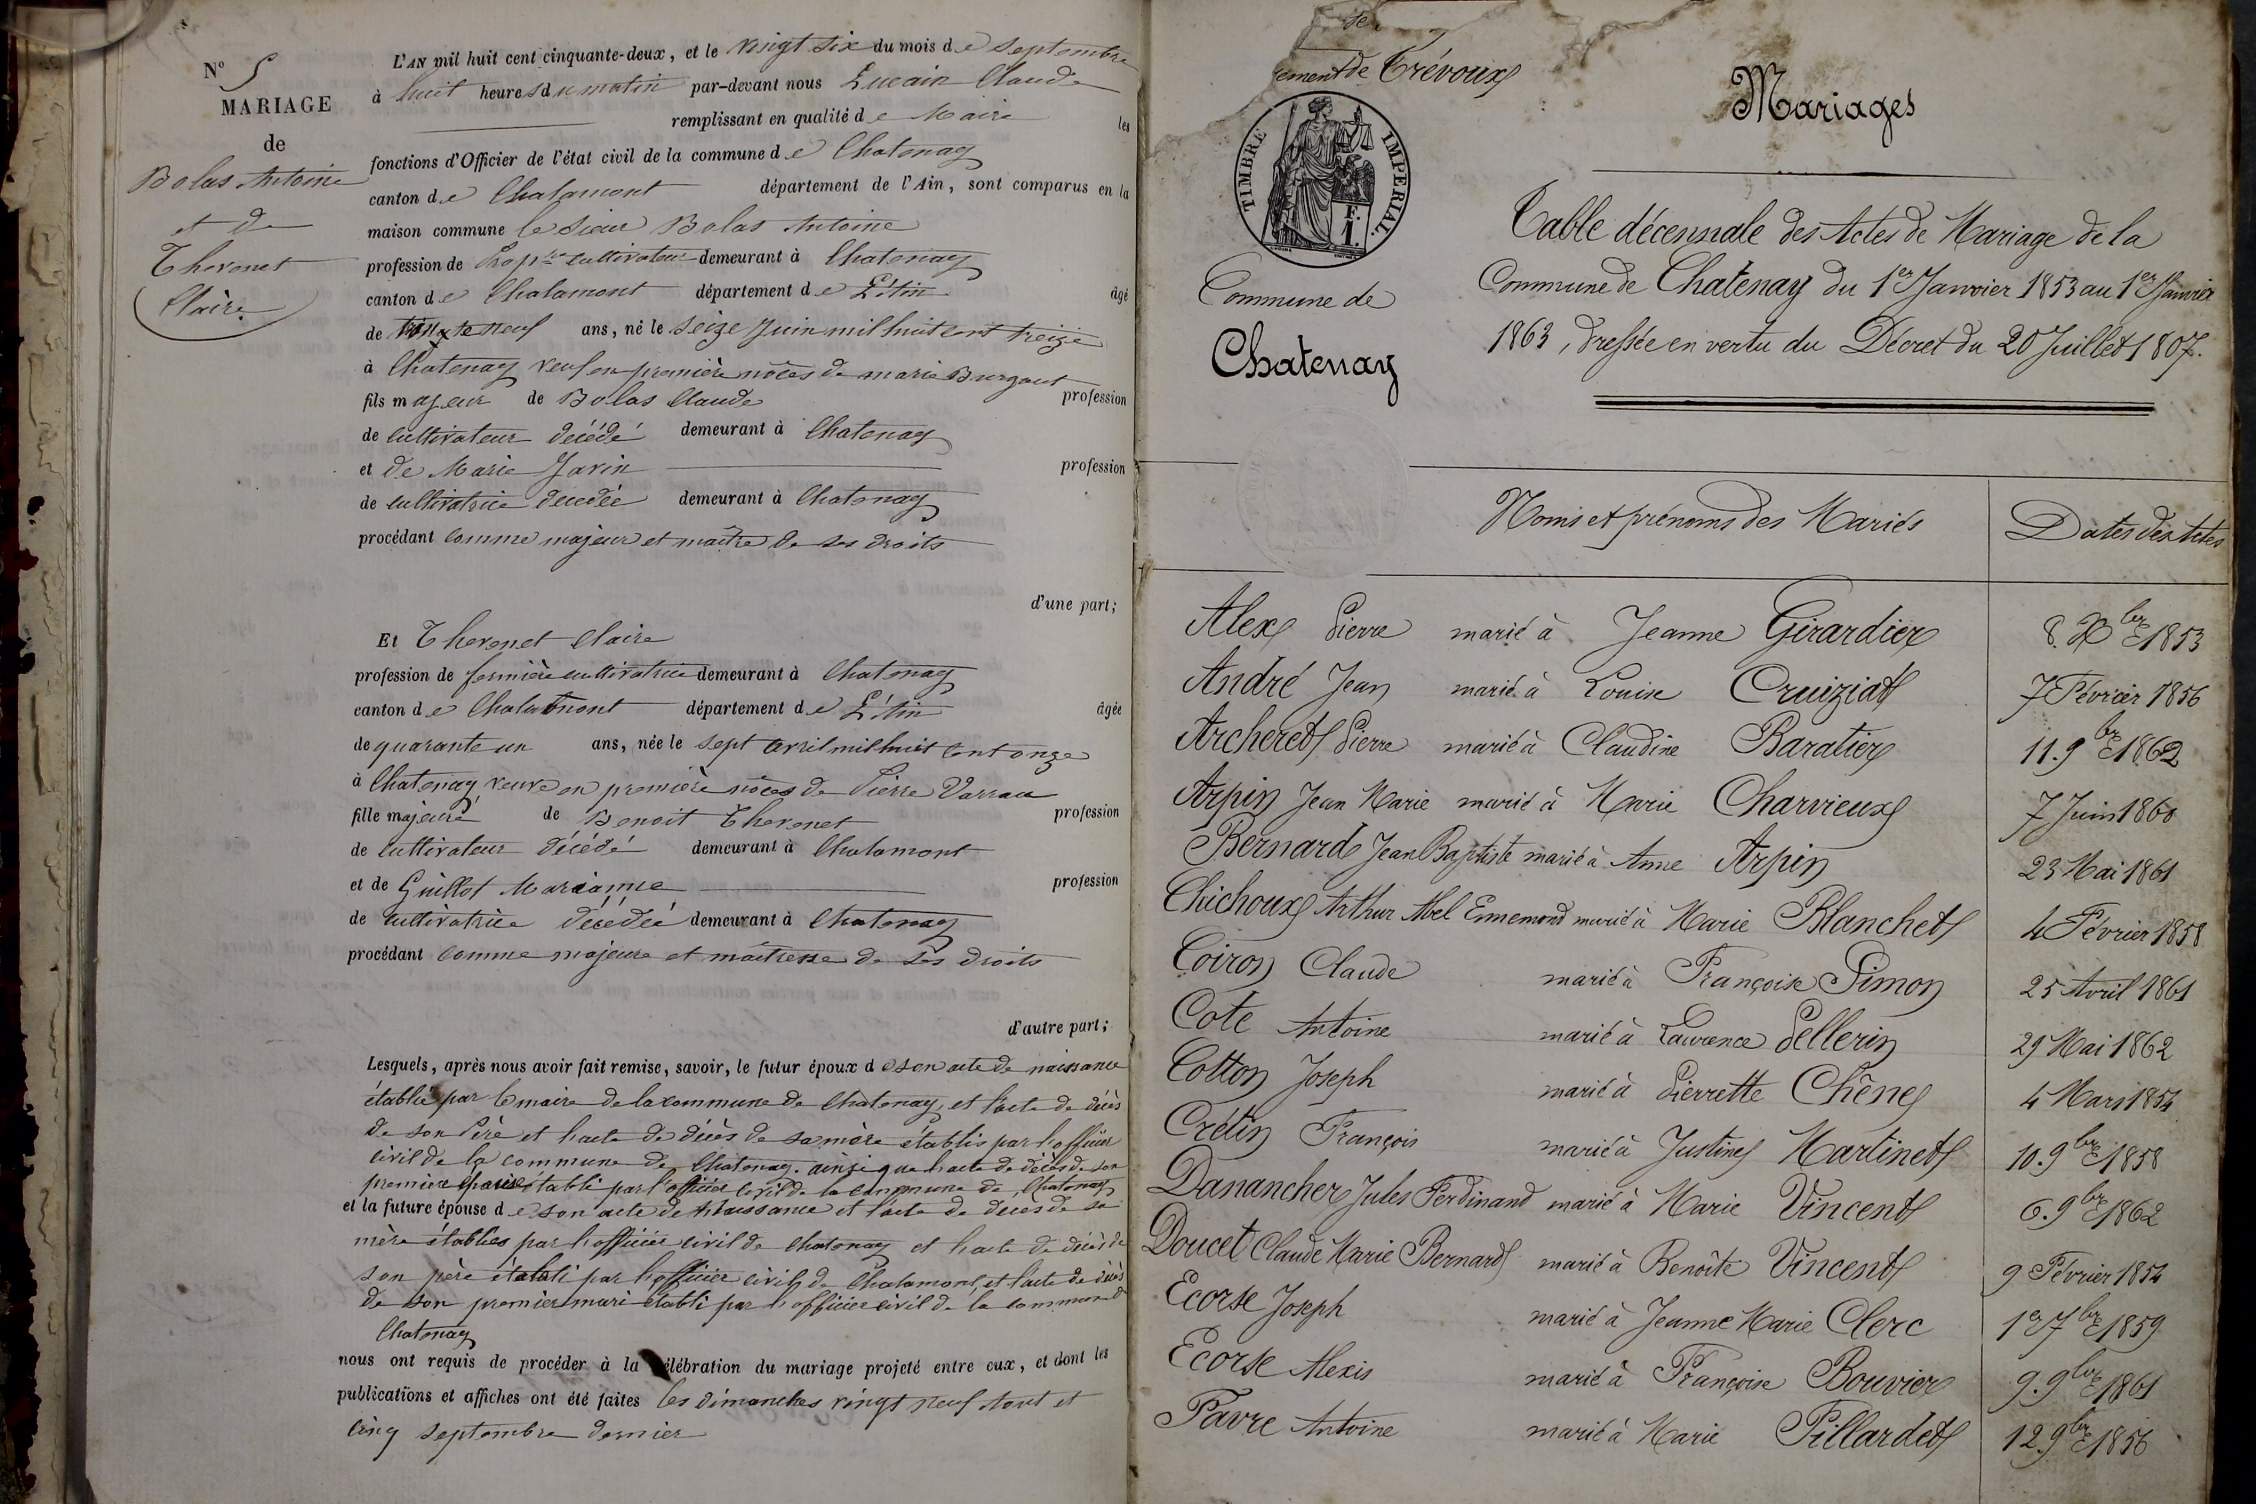 N° 5
MARIAGE
de
Bolas Antoine
et de
Thevenet
Claire
L'AN mil huit cent cinquante-deux, et le vingt six du mois de septembre
à huit heures du matin par-devant nous Lucain Claude
remplissant en qualité de Maire les
fonctions d'Officier de l'état civil de la commune de Chatenay
canton de Chalamont département de l'Ain, sont comparus en la
maison commune le sieur Bolas Antoine
profession de prop.re cultivateur demeurant à Chatenay
canton de Chalamont département de L'Ain âgé
de trente neuf ans, né le seize Juin mil huit cent treize
à Chatenay veuf en première nôces de marie Burgaut
fils majeur de Bolas Claude profession
de cultivateur décédé demeurant à Chatenay
et de Marie Javin profession
de cultivatrice décédée demeurant à Chatenay
procédant comme majeur et maître de ses droits
d'une part;
Et Thevenet Claire
profession de fermière cultivatrice demeurant à Chatenay
canton de Chalamont département de L'Ain âgée
de quarante un ans, née le sept avril mil huit cent onze
à Chatenay veuve en première nôces de Pierre Varrau
fille majeure de Benoit Thevenet profession
de cultivateur décédé demeurant à Chalamont
et de Guillot Marianne profession
de cultivatrice décédée demeurant à Chatenay
procédant comme majeure et maîtresse de ses droits
d'autre part;
Lesquels, après nous avoir fait remise, savoir, le futur époux de son acte de naissance
établie par le maire de la commune de Chatenay, et l'acte de décès
de son Père et l'acte de décès de sa mère établis par l'officier
civil de la commune de Chatenay. ainsi que l'acte de décès de son
première épouse établi par l'officier civil de la commune de Chatenay
et la future épouse de son acte de naissance et l'acte de décès de sa
mère établies par l'officier civil de Chatenay et l'acte de décès de
son père établi par l'officier civil de Chalamont, et l'acte de décès
de son premier mari établi par l'officier civil de la commune de
Chatenay
nous ont requis de procéder à la célébration du mariage projeté entre eux, et dont les
publications et affiches ont été faites les dimanches vingt neuf Aout et
cinq septembre dernier
ement de Trévoux
TIMBRE IMPERIAL
F.
1.
Commune de
Chatenay
Mariages
Table décennale des Actes de Mariage de la
Commune de Chatenay du 1er Janvier 1853 au 1er Janvier
1863, dressée en vertu du Décret du 20 Juillet 1807.
Noms et prénoms des Mariés Dates des Actes
Alex Pierre marié à Jeanne Girardier 8. Xbre 1853
André Jean marié à Louise Cruiziat 7 Février 1856
Archeret Pierre marié à Claudine Baratier 11. 9bre 1862
Arpin Jean Marie marié à Marie Charvieux 7 Juin 1860
Bernard Jean Baptiste marié à Anne Arpin 23 Mai 1861
Chichoux Arthur Abel Ennemond marié à Marie Blanchet 4 Février 1858
Coiron Claude marié à Françoise Simon 25 Avril 1861
Cote Antoine marié à Laurence Pellerin 29 Mai 1862
Cotton Joseph marié à Pierrette Chêne 4 Mars 1854
Crétin François marié à Justine Martinet 10. 9bre 1858
Danancher Jules Ferdinand marié à Marie Vincent 6. 9bre 1862
Doucet Claude Marie Bernard marié à Benoîte Vincent 9 Février 1854
Ecorse Joseph marié à Jeanne Marie Clerc 1er 7bre 1859
Ecorse Alexis marié à Françoise Bouvier 9. 9bre 1861
Favre Antoine marié à Marie Pillardet 12. 9bre 1856